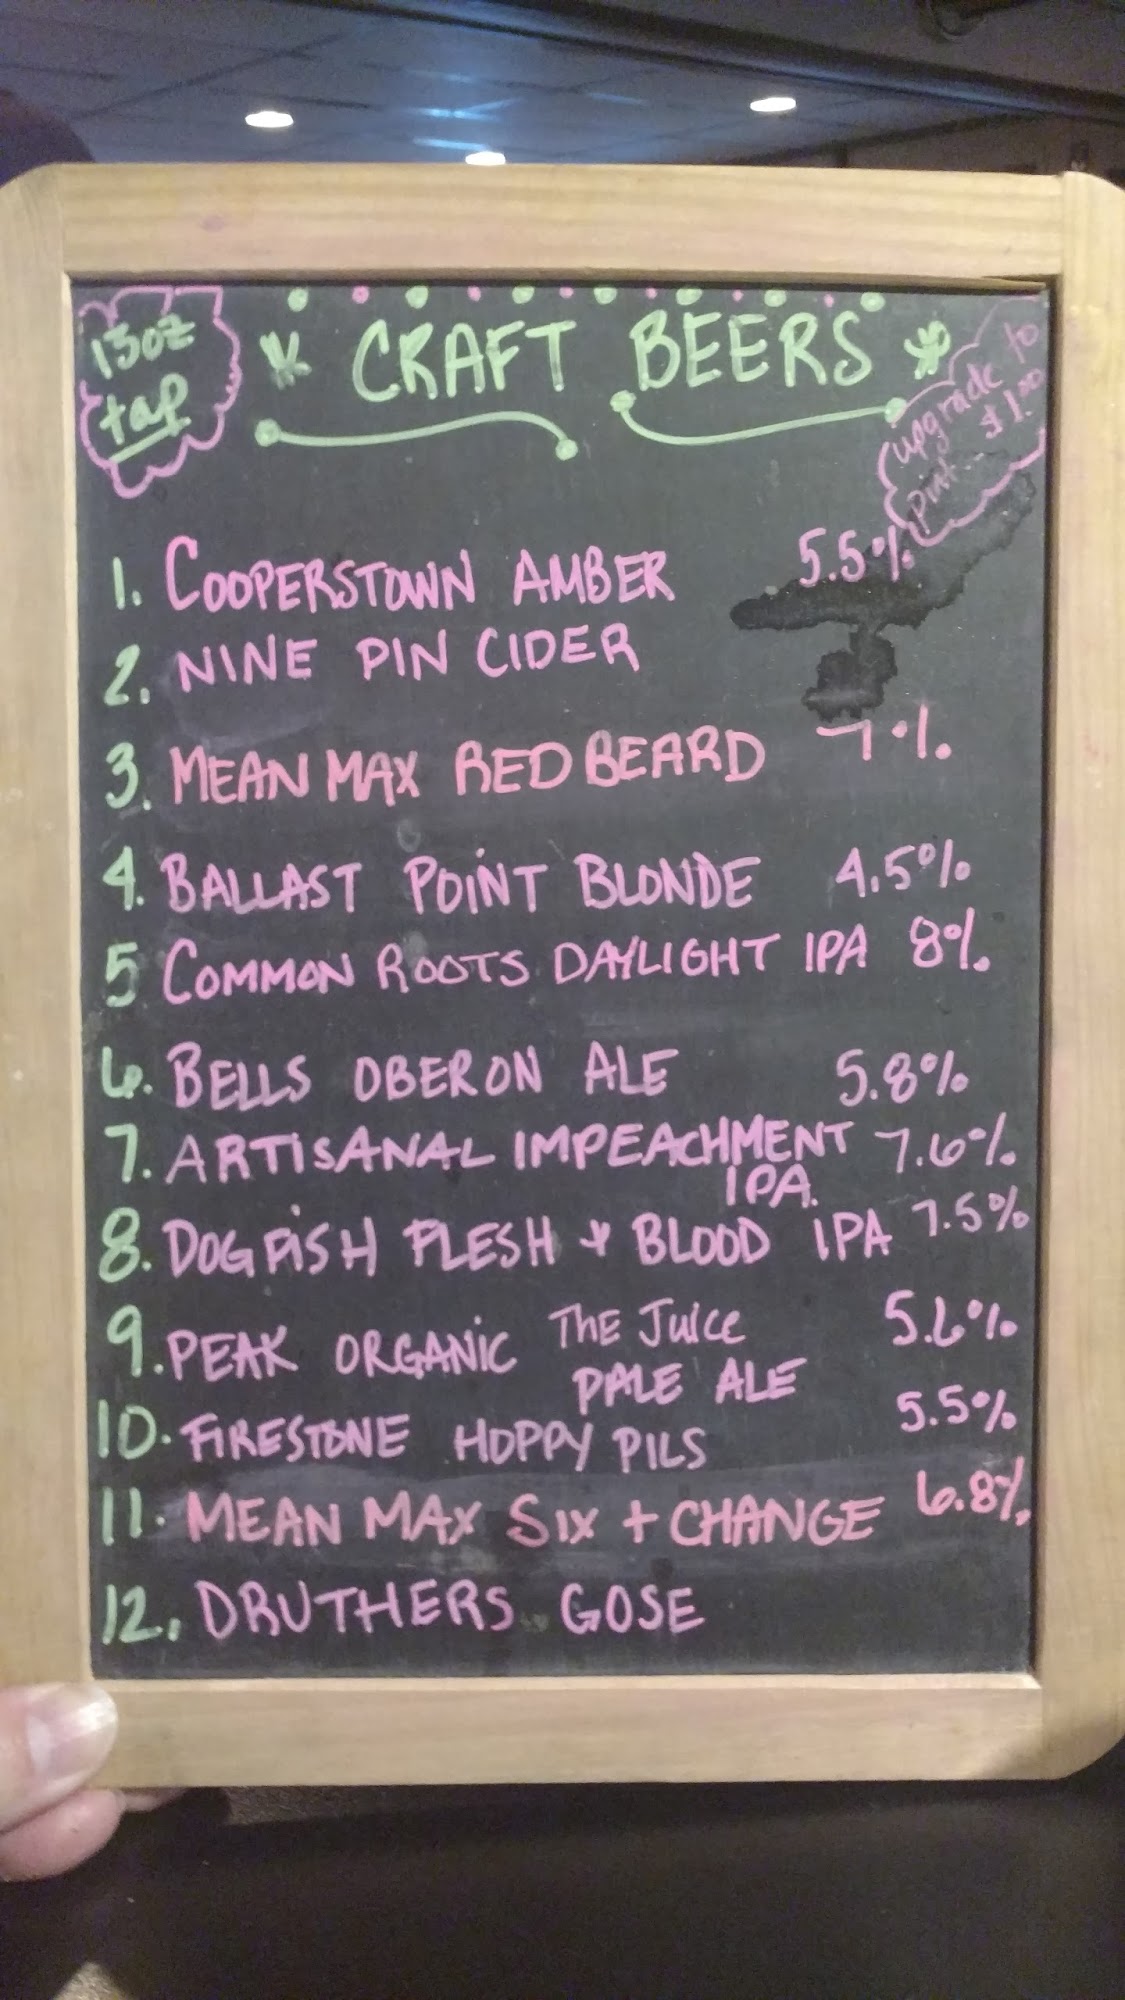 13oz
tap
CRAFT BEERS
upgrade to
pint... $1.00
1. COOPERSTOWN AMBER 5.5%
2. NINE PIN CIDER
3. MEAN MAX RED BEARD 7%
4. BALLAST POINT BLONDE 4.5%
5 COMMON ROOTS DAYLIGHT IPA 8%
6. BELLS OBERON ALE 5.8%
7. ARTISANAL IMPEACHMENT 7.6%
IPA.
8. DOGFISH FLESH & BLOOD IPA 7.5%
9. PEAK ORGANIC THE JUICE 5.6%
PALE ALE
10. FIRESTONE HOPPY PILS 5.5%
11. MEAN MAX SIX + CHANGE 6.8%
12. DRUTHERS GOSE